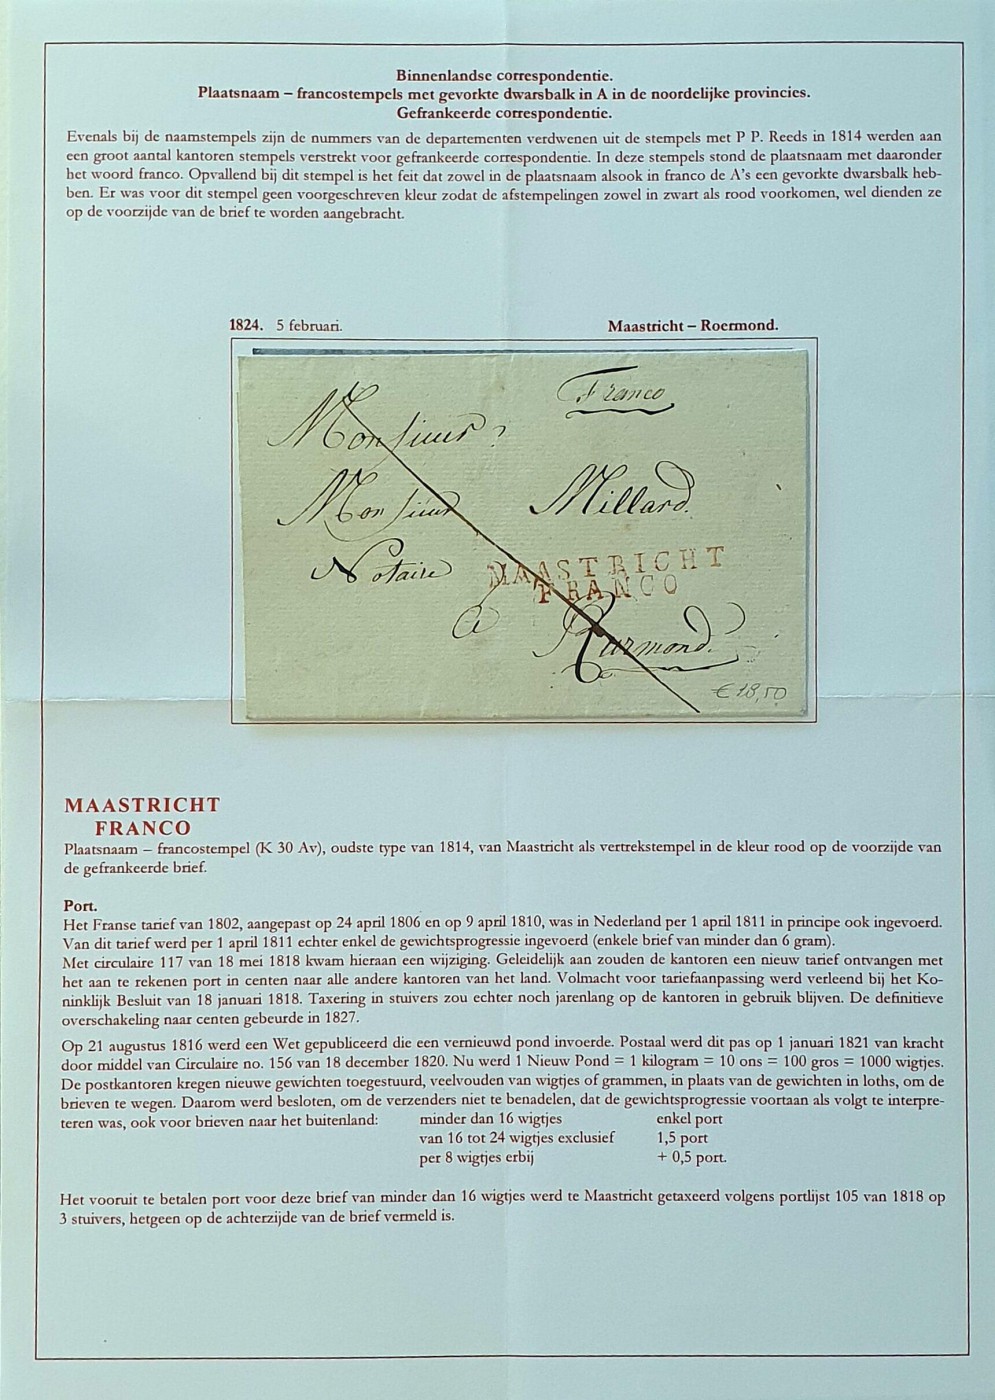 Binnenlandse correspondentie.
Plaatsnaam – francostempels met gevorkte dwarsbalk in A in de noordelijke provincies.
Gefrankeerde correspondentie.
Evenals bij de naamstempels zijn de nummers van de departementen verdwenen uit de stempels met P P. Reeds in 1814 werden aan
een groot aantal kantoren stempels verstrekt voor gefrankeerde correspondentie. In deze stempels stond de plaatsnaam met daaronder
het woord franco. Opvallend bij dit stempel is het feit dat zowel in de plaatsnaam alsook in franco de A's een gevorkte dwarsbalk heb-
ben. Er was voor dit stempel geen voorgeschreven kleur zodat de afstempelingen zowel in zwart als rood voorkomen, wel dienden ze
op de voorzijde van de brief te worden aangebracht.
1824. 5 februari. Maastricht – Roermond.
Franco
Monsieur
Monsieur Millard
Notaire
MAASTRICHT
FRANCO
a Rurmond.
€ 18,50
MAASTRICHT
FRANCO
Plaatsnaam – francostempel (K 30 Av), oudste type van 1814, van Maastricht als vertrekstempel in de kleur rood op de voorzijde van
de gefrankeerde brief.
Port.
Het Franse tarief van 1802, aangepast op 24 april 1806 en op 9 april 1810, was in Nederland per 1 april 1811 in principe ook ingevoerd.
Van dit tarief werd per 1 april 1811 echter enkel de gewichtsprogressie ingevoerd (enkele brief van minder dan 6 gram).
Met circulaire 117 van 18 mei 1818 kwam hieraan een wijziging. Geleidelijk aan zouden de kantoren een nieuw tarief ontvangen met
het aan te rekenen port in centen naar alle andere kantoren van het land. Volmacht voor tariefaanpassing werd verleend bij het Ko-
ninklijk Besluit van 18 januari 1818. Taxering in stuivers zou echter noch jarenlang op de kantoren in gebruik blijven. De definitieve
overschakeling naar centen gebeurde in 1827.
Op 21 augustus 1816 werd een Wet gepubliceerd die een vernieuwd pond invoerde. Postaal werd dit pas op 1 januari 1821 van kracht
door middel van Circulaire no. 156 van 18 december 1820. Nu werd 1 Nieuw Pond = 1 kilogram = 10 ons = 100 gros = 1000 wigtjes.
De postkantoren kregen nieuwe gewichten toegestuurd, veelvouden van wigtjes of grammen, in plaats van de gewichten in loths, om de
brieven te wegen. Daarom werd besloten, om de verzenders niet te benadelen, dat de gewichtsprogressie voortaan als volgt te interpre-
teren was, ook voor brieven naar het buitenland: minder dan 16 wigtjes enkel port
van 16 tot 24 wigtjes exclusief 1,5 port
per 8 wigtjes erbij + 0,5 port.
Het vooruit te betalen port voor deze brief van minder dan 16 wigtjes werd te Maastricht getaxeerd volgens portlijst 105 van 1818 op
3 stuivers, hetgeen op de achterzijde van de brief vermeld is.